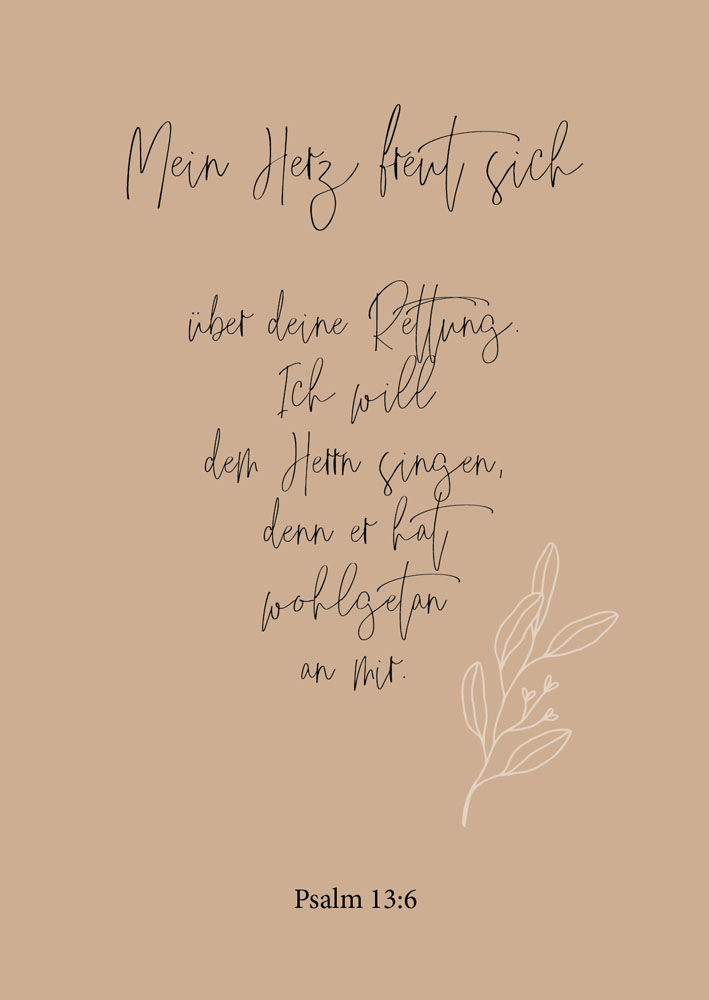 Mein Herz freut sich
über deine Rettung.
Ich will
dem Herrn singen,
denn er hat
wohlgetan
an mir.
Psalm 13:6